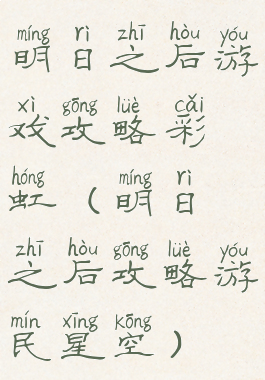 míng rì zhī hòu yóu
明日之后游
xì gōng lüè cǎi
戏攻略彩
hóng míng rì
虹（明日
zhī hòu gōng lüè yóu
之后攻略游
mín xīng kōng
民星空）